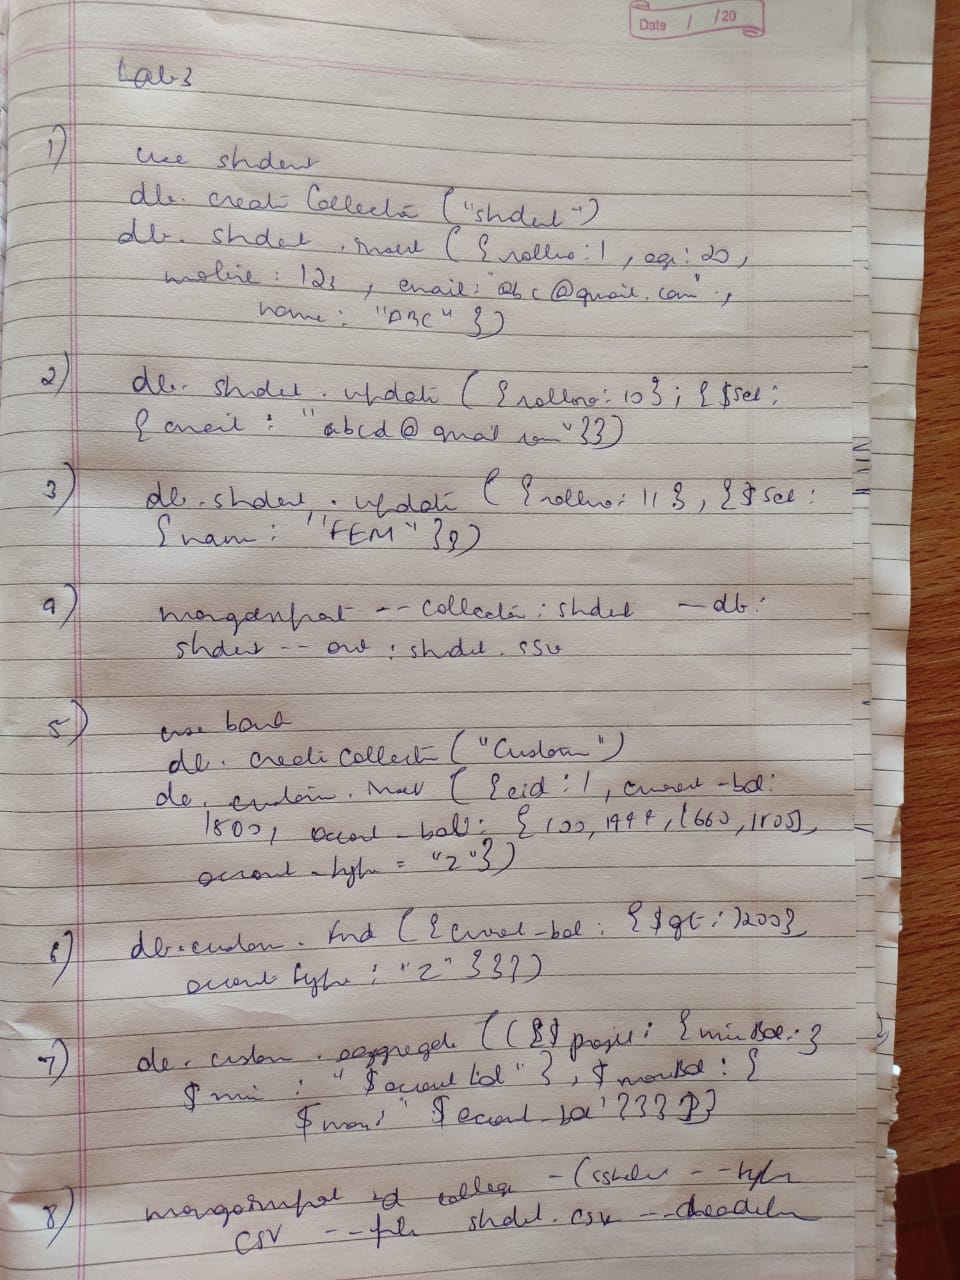 Date / /20
Lab 3
1) use student
db. createCollection ("student")
db. student . insert ( { rollno : 1 , age : 20 ,
mobile : 123 , email : "abc@gmail.com" ,
name : "ABC" } )
2) db. student . update ( { rollno : 10 } ; { $set :
{ email : "abcd@gmail com" } } )
3) db. student . update ( { rollno : 11 } , { $set :
{ name : "FEM" } } )
4) -- collection : student -- db :
student -- out : student . csv
5) use bank
db. createCollection ("Custom")
db. custom . insert ( { cid : 1 , current - bal :
1800, account - bal : {
account - type = "Z" } )
6) db. custom . find ( { current - bal : { $gt : 1200 } ,
account type : "Z" } } } )
7) db. custom . aggregate ( ( { $ project : { minBal : {
$ min : " $ account bal " } , $ maxBal : {
$ max : " $ account - bal ' } } }
8) mongoimport -d college -- type
csv -- file student . csv